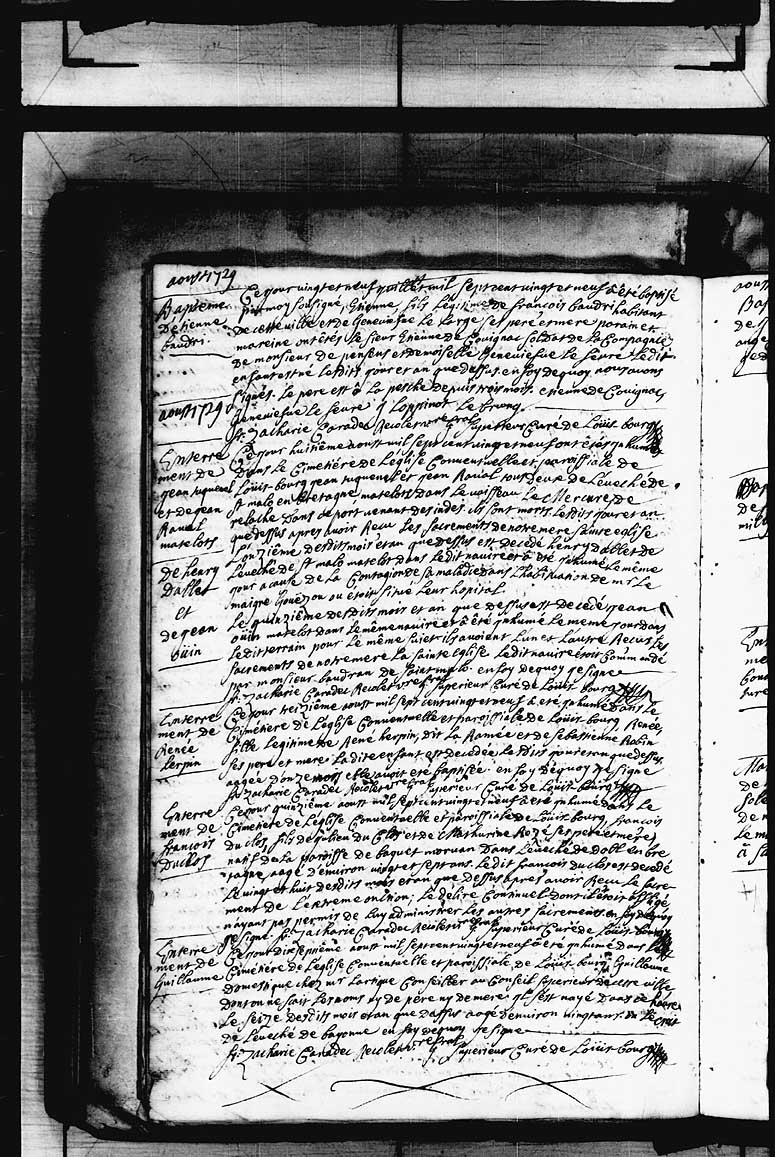 aoust 1729
Bapteme
d'étienne
baudri.
Ce jour vingt et neuf juillet mil sept cent vingt et neuf a été baptisé
par moy sousigné, Etienne, fils Legitime de francois baudri habitant
de cette ville et de Geneviefue Le Large ses pere et mere parain et
maraine ont étés le sieur Etienne de Couignac soldat de La Compagnie
de monsieur de pensens et demoiselle Geneviefue Le feure Ledit
enfant est né Lesdits jour et an que dessus. en foy de quoy nous avons
signés. Le pere est à La pesche depuis trois mois. etienne de Couignac
Genevieufue le feure Loppinot Le brung
fr. Zacharie Caradec Recolet Superieur Curé de Loüis-bourg
aoust 1729
Enterre
ment de
jean juquenel
et de jean
Raual
matelots
Ce jour huitième aoust mil sept cent vingt et neuf ont étés inhumés
dans Le Cimetiére de Leglise Conventuelle et paroissiale de
Loüis-bourg jean juquenel et jean Raual tous deux de Leveché de
st malo en bretagne matelots dans Le vaisseau Le Mercure de
relache dans ce port venant des indes. ils sont morts Lesdits jour et an
que dessus apres avoir Recu Les sacrements de notre mere sainte eglise
de henry
Dallet
et
de jean
oüin
L'onzième desdits mois et an que dessus est decedé henry Dallet de
Leveché de st malo matelot dans Ledit navire et a été inhumé Le même
jour a cause de La Contagion de sa maladie dans L'habitation de mr Le
maigre ou etoit situé Leur hopital.
Le quinzième desdits mois et an que dessus est decedé jean
oüin matelot dans Le même navire et a été inhumé Le meme jour dans
Ledit terrain pour Le même sujet ils avoient L'un et L'autre Recus Les
sacrements de notre mere La sainte Eglise Ledit navire étoit Commandé
par monsieur baudran de saint malo. en foy de quoy je signe
fr. Zacharie Caradec Recolet Superieur Curé de Loüis-bourg
Enterre
ment de
Renée
herpin
Ce jour treizième aoust mil sept cent vingt et neuf a été inhumée dans Le
Cimetiére de Leglise Conventuelle et paroissiale de Loüis-bourg Renée,
fille Legitime de René herpin, dit La Ramée et de sebastienne Robin
ses pere et mere Ladite enfant est decedée Lesdits jour et an que dessus,
agée d'onze mois elle avoit été baptisée. en foy de quoy je signe
fr. Zacharie Caradec Recolet Superieur Curé de Loüis-bourg
Enterre
ment de
francois
Duclos
Ce jour quinzième aoust mil sept cent vingt et neuf a été inhumé dans Le
Cimetiére de Leglise Conventuelle et paroissiale de Loüis-bourg, francois
du clos, fils de julien du Clos et de Mathurine Rozé ses pere et mere,
natif de La paroisse de baguet morvan dans L'evêché de doll en bre
tagne, agé d'environ vingt et sept ans. Ledit francois du clos est decedé
Le vingt et huit desdits mois et an que dessus apres avoir Recu Le sacre
ment de L'extreme onction; Le delire Continuel dont il étoit affligé
n'ayant pas permis de Luy administrer Les autres sacrements en foy de quoy
je signe fr. Zacharie Caradec Recolet Superieur Curé de Loüis-bourg
Enterre
ment de
Guillaume
Ce jour dix septième aoust mil sept cent vingt et neuf a été inhumé dans Le
Cimetiére de Leglise Conventuelle et paroissiale de Loüis-bourg Guillaume
domestique chez mr Lartigue Conseiller au Conseil superieur de cette ville
dont on ne scait Les noms ny de père ny de mere il s'est nayé dans Le havre
Le seize desdits mois et an que dessus agé d'environ vingt ans. on Le croit
de L'eveché de bayonne en foy de quoy je signe
fr. Zacharie Caradec Recolet Superieur Curé de Loüis-bourg